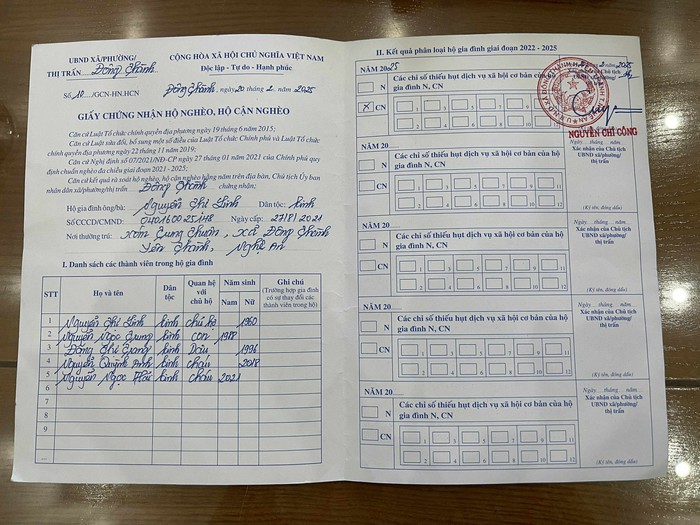 UBND XÃ/PHƯỜNG/
THỊ TRẤN Đông Thành
CỘNG HÒA XÃ HỘI CHỦ NGHĨA VIỆT NAM
Độc lập - Tự do - Hạnh phúc
Số 10 /GCN-HN.HCN
Đông Thành, ngày 20 tháng 2 năm 2025
GIẤY CHỨNG NHẬN HỘ NGHÈO, HỘ CẬN NGHÈO
Căn cứ Luật Tổ chức chính quyền địa phương ngày 19 tháng 6 năm 2015;
Căn cứ Luật sửa đổi, bổ sung một số điều của Luật Tổ chức Chính phủ và Luật Tổ chức
chính quyền địa phương ngày 22 tháng 11 năm 2019;
Căn cứ Nghị định số 07/2021/NĐ-CP ngày 27 tháng 01 năm 2021 của Chính phủ quy
định chuẩn nghèo đa chiều giai đoạn 2021 - 2025;
Căn cứ kết quả rà soát hộ nghèo, hộ cận nghèo hằng năm trên địa bàn, Chủ tịch Ủy ban
nhân dân xã/phường/thị trấn Đông Thành chứng nhận:
Hộ gia đình ông/bà: Nguyễn Thị Linh Dân tộc: kinh
Số CCCD/CMND: Ngày cấp:
Nơi thường trú: xóm Trung Thuần, xã Đông Thành
Yên Thành, Nghệ An
I. Danh sách các thành viên trong hộ gia đình
STT Họ và tên Dân tộc Quan hệ với chủ hộ Năm sinh Nam Nữ Ghi chú (Trường hợp gia đình có sự thay đổi các thành viên trong hộ)
1 Nguyễn Thị Linh kinh chủ hộ 1960
2 Nguyễn Ngọc Trung kinh con
3 Đặng Thị Trang kinh Dâu
4 Nguyễn Quỳnh Anh kinh cháu 2018
5 Nguyễn Ngọc kinh cháu 2021
6
7
8
9
...
II. Kết quả phân loại hộ gia đình giai đoạn 2022 - 2025
NĂM 2025
N
X CN
Các chỉ số thiếu hụt dịch vụ xã hội cơ bản của hộ
gia đình N, CN
1 3 5 7 9 11
2 4 6 8 10 12
NGUYỄN CHÍ CÔNG
NĂM 20
N
CN
Các chỉ số thiếu hụt dịch vụ xã hội cơ bản của hộ
gia đình N, CN
1 3 5 7 9 11
2 4 6 8 10 12
Ngày... tháng... năm...
Xác nhận của Chủ tịch
UBND xã/phường/
thị trấn
(Ký tên, đóng dấu)
NĂM 20
N
CN
Các chỉ số thiếu hụt dịch vụ xã hội cơ bản của hộ
gia đình N, CN
1 3 5 7 9 11
2 4 6 8 10 12
Ngày... tháng... năm...
Xác nhận của Chủ tịch
UBND xã/phường/
thị trấn
(Ký tên, đóng dấu)
NĂM 20
N
CN
Các chỉ số thiếu hụt dịch vụ xã hội cơ bản của hộ
gia đình N, CN
1 3 5 7 9 11
2 4 6 8 10 12
Ngày... tháng... năm...
Xác nhận của Chủ tịch
UBND xã/phường/
thị trấn
(Ký tên, đóng dấu)
NĂM 20
N
CN
Các chỉ số thiếu hụt dịch vụ xã hội cơ bản của hộ
gia đình N, CN
1 3 5 7 9 11
2 4 6 8 10 12
Ngày... tháng... năm...
Xác nhận của Chủ tịch
UBND xã/phường/
thị trấn
(Ký tên, đóng dấu)